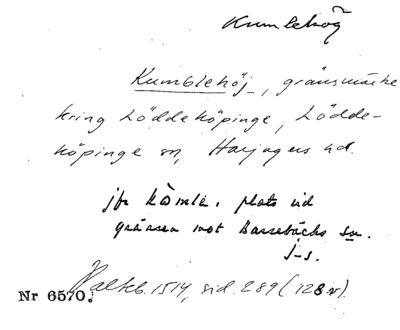 Kumlehög
Kumblehöj, gränsmärke
kring Löddeköpinge, Lödde-
köpinge sn, Harjagers hd.
jfr Komle. plats vid
gränsen mot Barsebäcks sn.
J-s.
Palteb. 1514, sid. 289 (128 v).
Nr 6570.